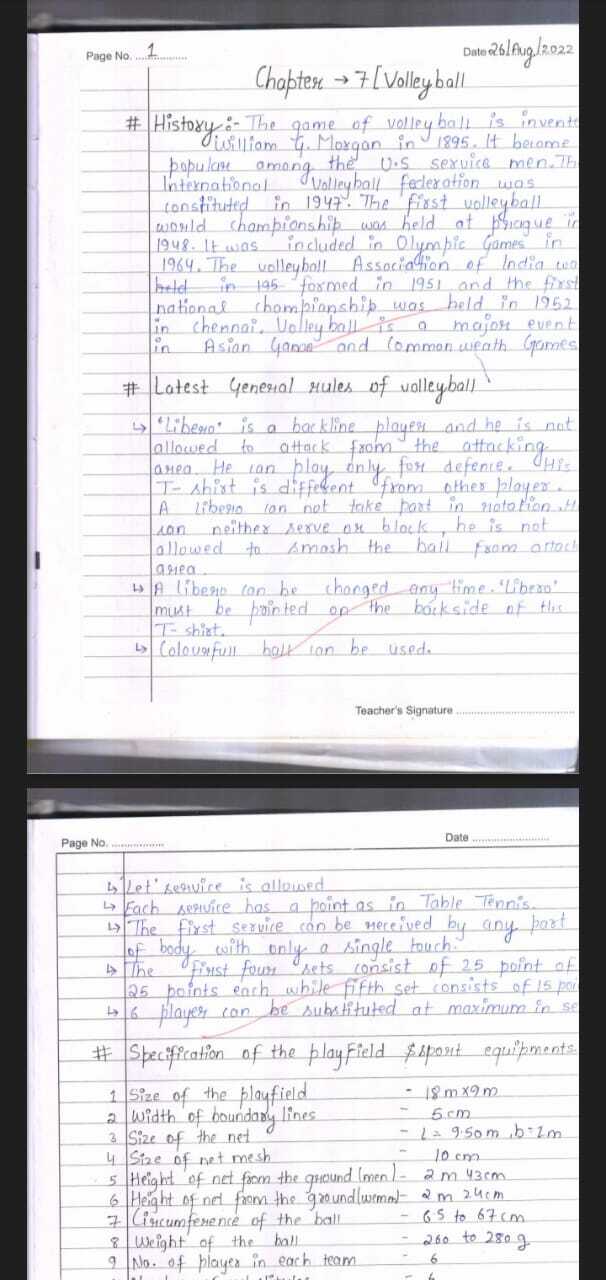 Page No. ....1............
Date 26/Aug/2022
Chapter → 7 [Volleyball
# History :- The game of volleyball is invente
William G. Morgan in 1895. It become
popular among the U.S service men. Th
International Volleyball federation was
constituted in 1947. The first volleyball
world championship was held at prague in
1948. It was included in Olympic Games in
1964. The volleyball Association of India wa
held in 195 formed in 1951 and the first
national championship was held in 1952
in chennai. Volleyball is a major event
in Asian Game and Common weath Games
# Latest General rules of volleyball
↳ 'Libero' is a backline player and he is not
allowed to attack from the attacking
area. He can play only for defence. His
T-shirt is different from other player.
A libero can not take part in rotation. H
can neither serve or block, he is not
allowed to smash the ball from attack
area
↳ A libero can be changed any time. 'Libero'
must be painted on the backside of his
T-shirt.
↳ Colourfull ball can be used.
Teacher's Signature ..................................
Page No. .................
Date .........................
↳ 'Let' service is allowed
↳ Each service has a point as in Table Tennis.
↳ The first service can be received by any part
of body with only a single touch.
↳ The first four sets consist of 25 point of
25 points each while fifth set consists of 15 poi
↳ 6 player can be substituted at maximum in se
# Specification of the playfield & sport equipments
1 Size of the playfield - 18m x 9m
2 Width of boundary lines - 5 cm
3 Size of the net - L = 9.50m, b = 1m
4 Size of net mesh - 10 cm
5 Height of net from the ground (men) - 2 m 43cm
6 Height of net from the ground (women) - 2 m 24cm
7 Circumference of the ball - 65 to 67 cm
8 Weight of the ball - 260 to 280 g
9 No. of player in each team - 6